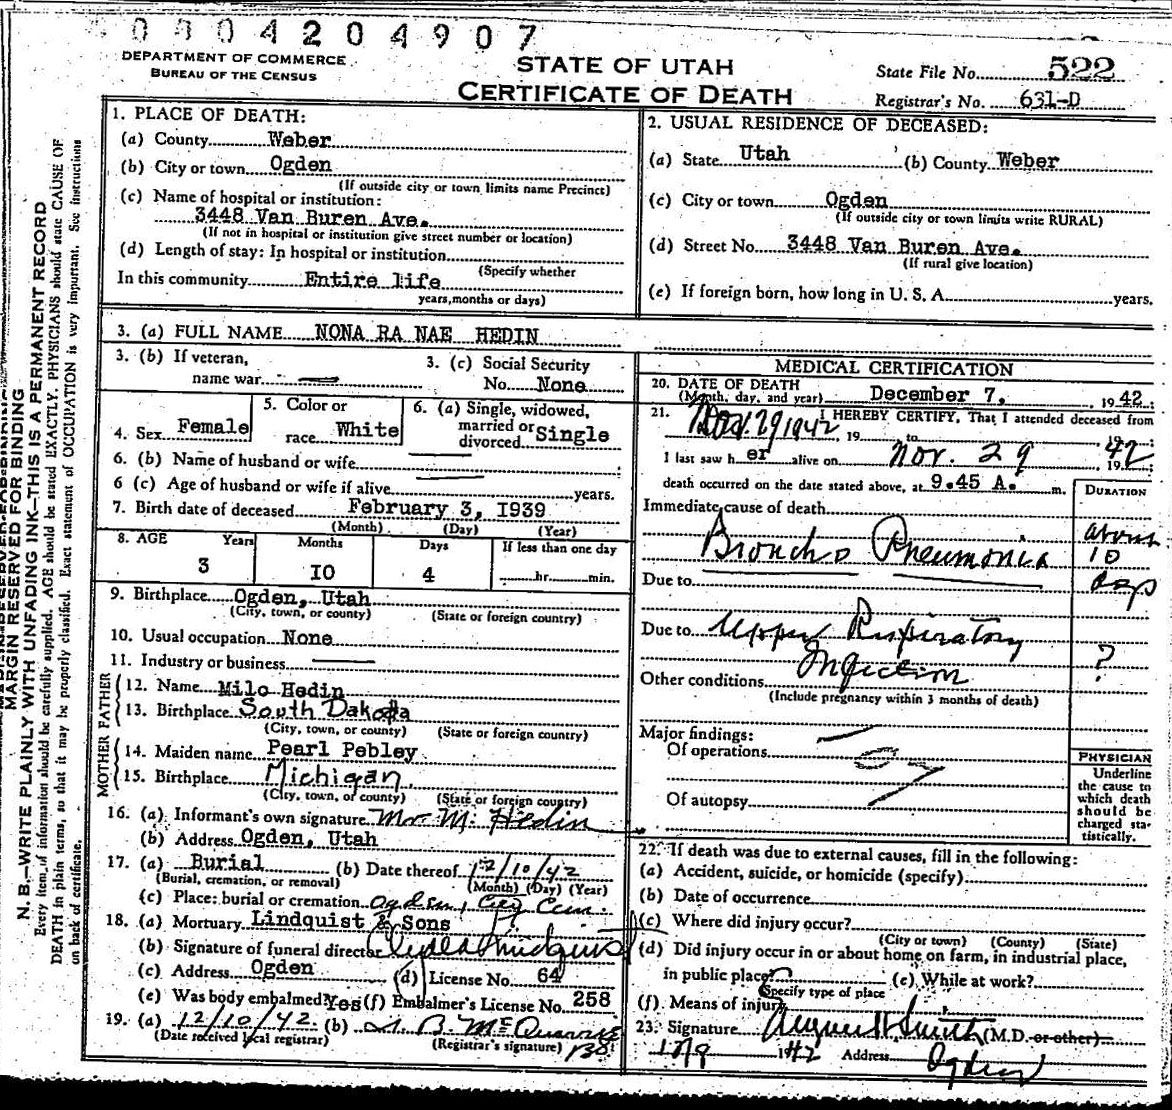 0304204907
DEPARTMENT OF COMMERCE
BUREAU OF THE CENSUS
STATE OF UTAH
CERTIFICATE OF DEATH
State File No. 522
Registrar's No. 631-D
1. PLACE OF DEATH:
(a) County Weber
(b) City or town Ogden
(If outside city or town limits name Precinct)
(c) Name of hospital or institution:
3448 Van Buren Ave.
(If not in hospital or institution give street number or location)
(d) Length of stay: In hospital or institution
(Specify whether
In this community Entire life
years, months or days)
2. USUAL RESIDENCE OF DECEASED:
(a) State Utah (b) County Weber
(c) City or town Ogden
(If outside city or town limits write RURAL)
(d) Street No. 3448 Van Buren Ave.
(If rural give location)
(e) If foreign born, how long in U. S. A. years.
3. (a) FULL NAME NONA RA NAE HEDIN
3. (b) If veteran,
name war
3. (c) Social Security
No. None
4. Sex Female
5. Color or
race White
6. (a) Single, widowed,
married or
divorced Single
6. (b) Name of husband or wife
6 (c) Age of husband or wife if alive years.
7. Birth date of deceased February 3, I939
(Month) (Day) (Year)
8. AGE Years Months Days If less than one day
3 IO 4 hr. min.
9. Birthplace Ogden, Utah
(City, town, or county) (State or foreign country)
10. Usual occupation None
11. Industry or business
FATHER
12. Name Milo Hedin
13. Birthplace South Dakota
(City, town, or county) (State or foreign country)
MOTHER
14. Maiden name Pearl Pebley
15. Birthplace Michigan
(City, town, or county) (State or foreign country)
16. (a) Informant's own signature M. Hedin
(b) Address Ogden, Utah
17. (a) Burial (b) Date thereof 12/10/42
(Burial, cremation, or removal) (Month) (Day) (Year)
(c) Place: burial or cremation Ogden, City Cem.
18. (a) Mortuary Lindquist & Sons
(b) Signature of funeral director
(c) Address Ogden (d) License No. 64
(e) Was body embalmed? Yes (f) Embalmer's License No. 258
19. (a) 12/10/42. (b)
(Date received local registrar) (Registrar's signature)
MEDICAL CERTIFICATION
20. DATE OF DEATH
(Month, day, and year) December 7, 1942.
21. I HEREBY CERTIFY, That I attended deceased from
Nov. 29 1942, 19 to , 19
I last saw h er alive on Nov. 29, 1942
death occurred on the date stated above, at 9.45 A. m.
DURATION
Immediate cause of death
Broncho Pneumonia
about
10
days
Due to
Due to Upper Respiratory
Infection
?
Other conditions
(Include pregnancy within 3 months of death)
Major findings:
Of operations
Of autopsy
PHYSICIAN
Underline
the cause to
which death
should be
charged sta-
tistically.
22. If death was due to external causes, fill in the following:
(a) Accident, suicide, or homicide (specify)
(b) Date of occurrence
(c) Where did injury occur?
(City or town) (County) (State)
(d) Did injury occur in or about home, on farm, in industrial place,
in public place? (e) While at work?
(Specify type of place
(f) Means of injury
23. Signature Smith (M.D. or other)
12/9 1942 Address Ogden
MARGIN RESERVED FOR BINDING
N. B.—WRITE PLAINLY WITH UNFADING INK—THIS IS A PERMANENT RECORD
Every item of information should be carefully supplied. AGE should be stated EXACTLY. PHYSICIANS should state CAUSE OF
DEATH in plain terms, so that it may be properly classified. Exact statement of OCCUPATION is very important. See instructions
on back of certificate.